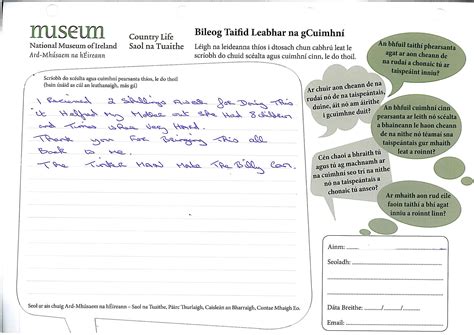 museum
National Museum of Ireland
Ard-Mhúsaem na hÉireann
Country Life
Saol na Tuaithe
Bileog Taifid Leabhar na gCuimhní
Léigh na leideanna thíos i dtosach chun cabhrú leat le
scríobh do chuid scéalta agus cuimhní cinn, le do thoil.
Scríobh do scéalta agus cuimhní pearsanta thíos, le do thoil.
(bain úsáid as cúl an leathanaigh, más gá)
I Recieved 2 Shillings A week for Doing This
it Helped My Mother out She Had 8 children
and Times where very Hard.
Thank you For Bringing This all
Back to me.
The Tinker MAN Make The Billy Can.
An bhfuil taithí phearsanta
agat ar aon cheann de na
rudaí a chonaic tú ar
taispeáint?
Ar chuir aon cheann de na
rudaí nó de na taispeántais,
duine, áit nó am áirithe
i gcuimhne duit?
An bhfuil cuimhní cinn
pearsanta ar leith nó scéalta
a bhaineann le haon cheann
de na nithe nó téamaí sna
taispeántais gur mhaith
leat a roinnt?
Cén chaoi a bhraith tú
agus tú ag machnamh ar
na cuimhní seo tríd na nithe
nó na taispeántais a
chonaic tú anseo?
Ar mhaith aon rud eile
faoin taithí a bhí agat
inniu a roinnt linn?
Ainm:
Seoladh:
Dáta Breithe:
Inniu:
Seol ar ais chuig Ard-Mhúsaem na hÉireann – Saol na Tuaithe, Páirc Thurlaigh, Caisleán an Bharraigh, Contae Mhaigh Eo.